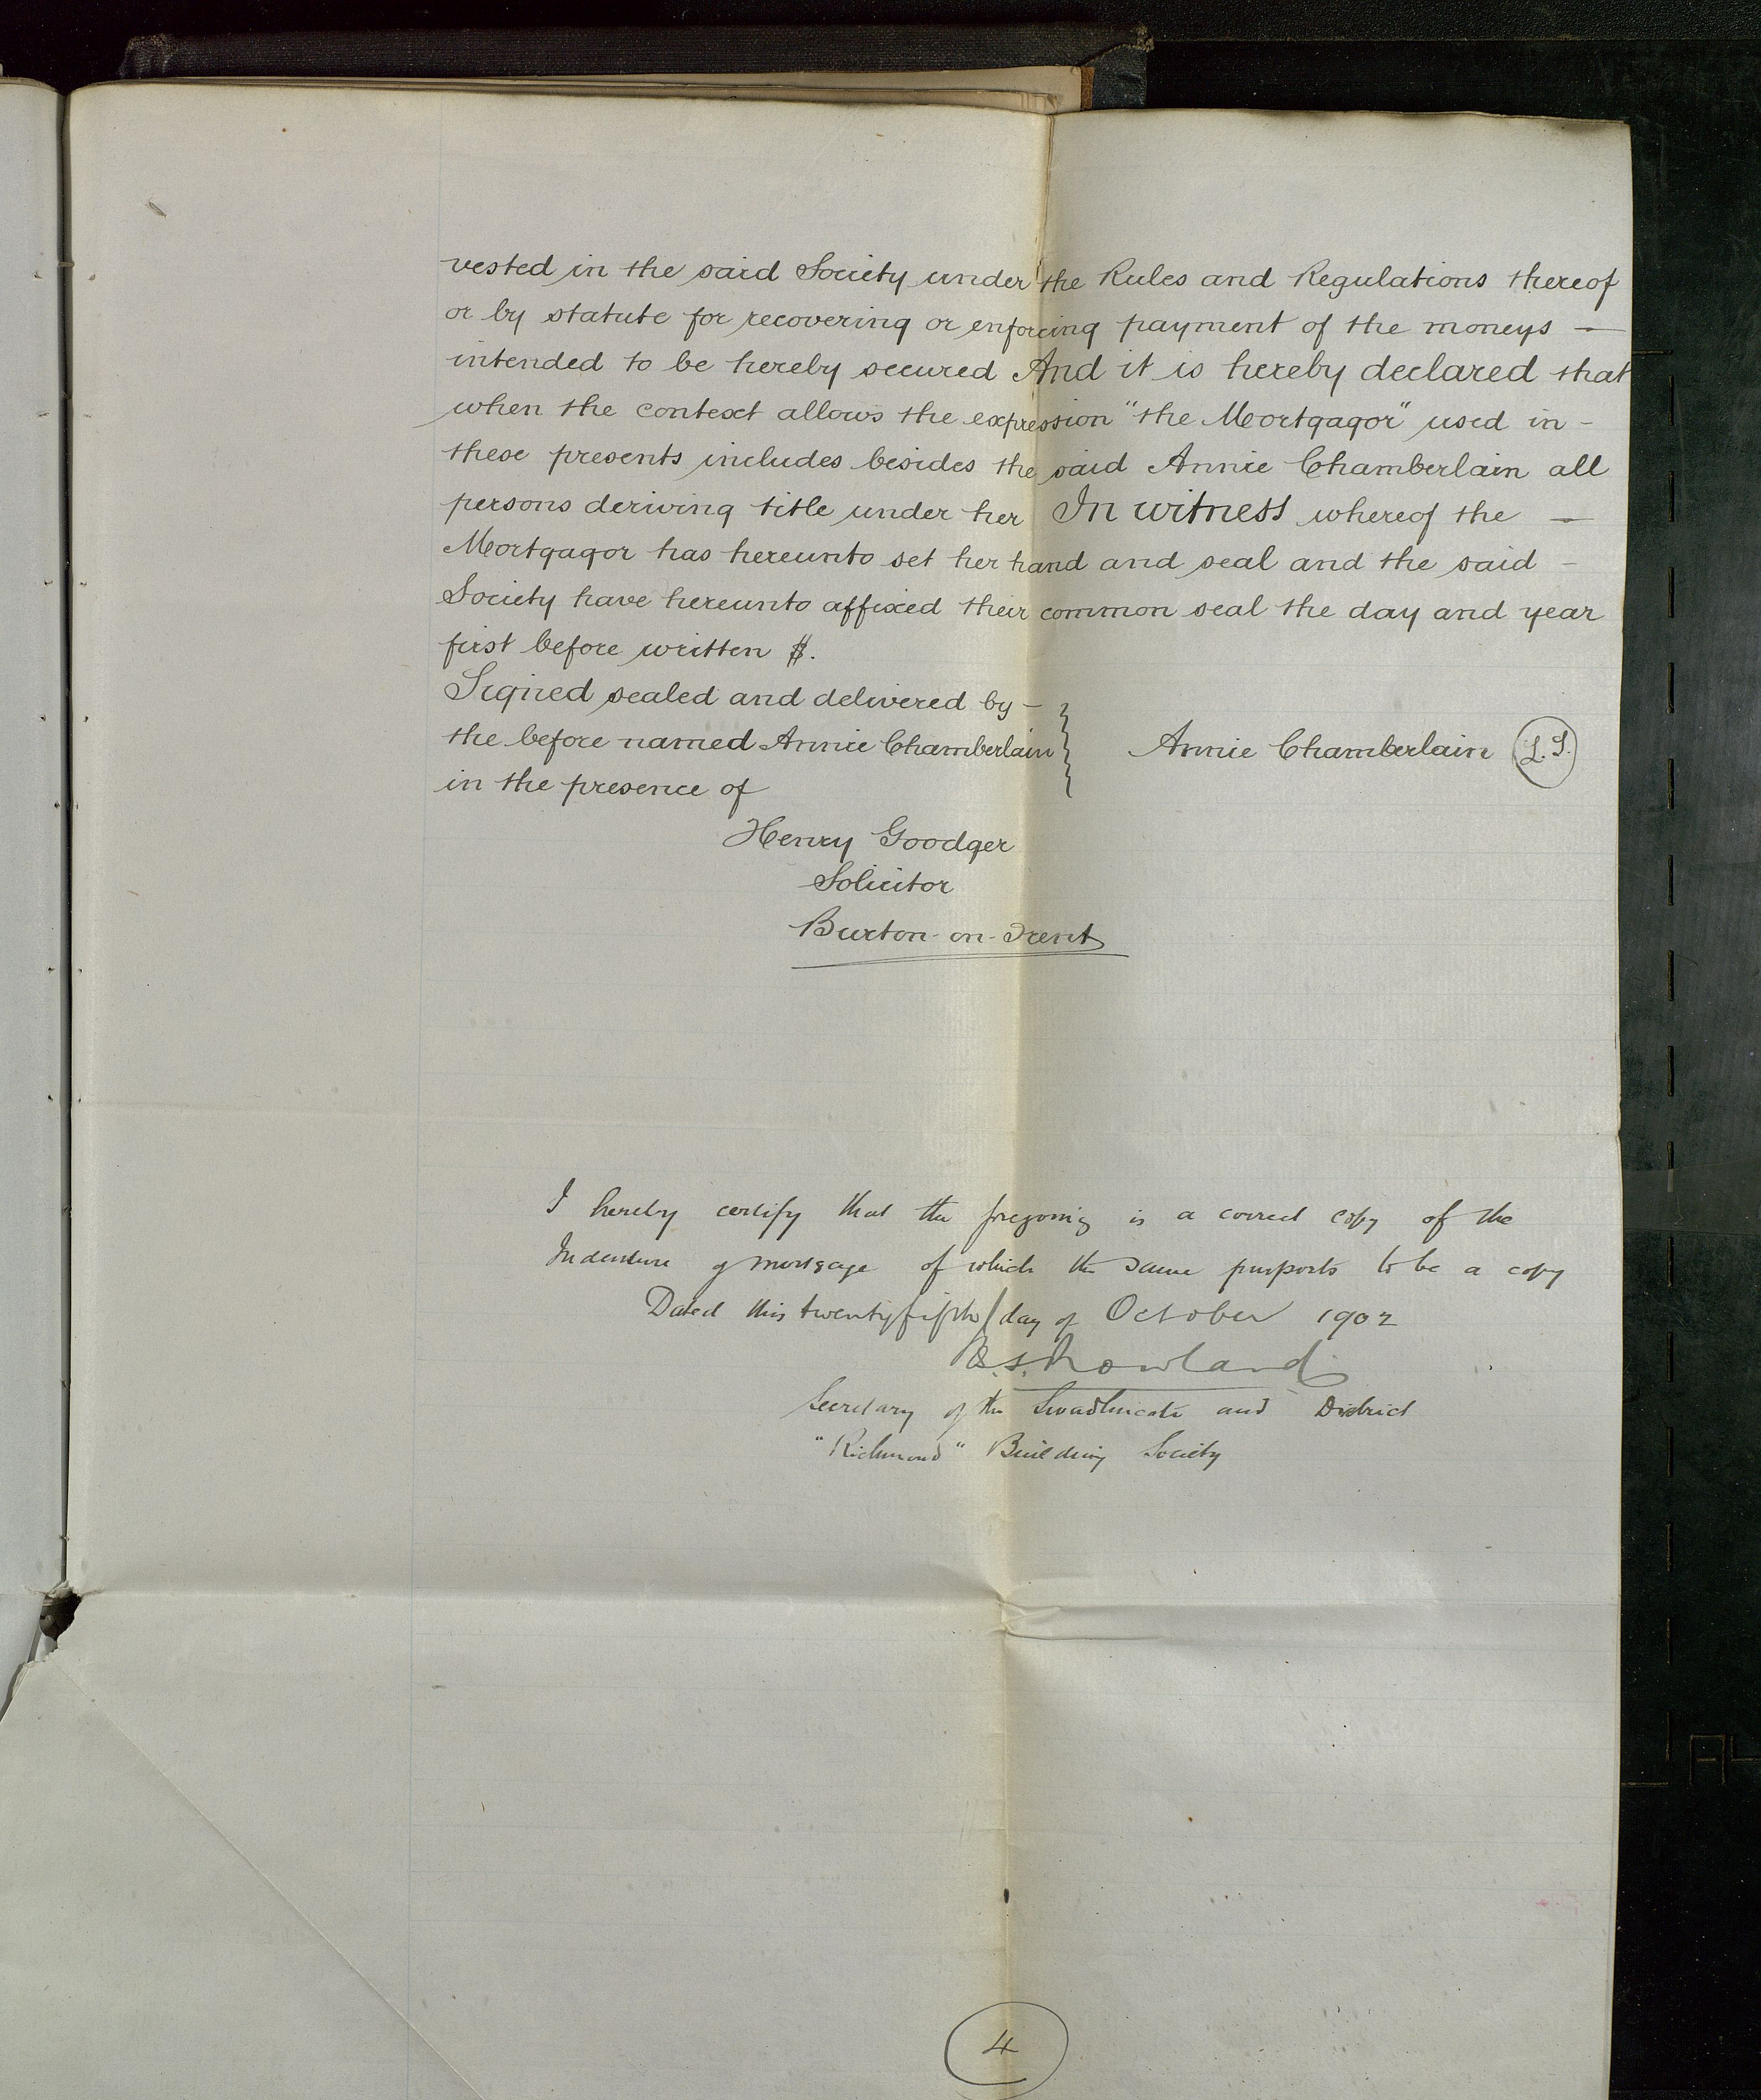 vested in the said Society under the Rules and Regulations thereof
or by statute for recovering or enforcing payment of the moneys —
intended to be hereby secured And it is hereby declared that
when the context allows the expression "the Mortgagor" used in -
these presents includes besides the said Annie Chamberlain all
persons deriving title under her In witness whereof the —
Mortgagor has hereunto set her hand and seal and the said -
Society have hereunto affixed their common seal the day and year
first before written
Signed sealed and delivered by -
the before named Annie Chamberlain
in the presence of
Annie Chamberlain L.S.
Henry Goodger
Solicitor
Burton-on-Trent
I hereby certify that the foregoing is a correct copy of the
Indenture of mortgage of which the same purports to be a copy
Dated this twentyfifth day of October 1902
Rowland
Secretary of the Swadlincote and District
"Richmond" Building Society
4